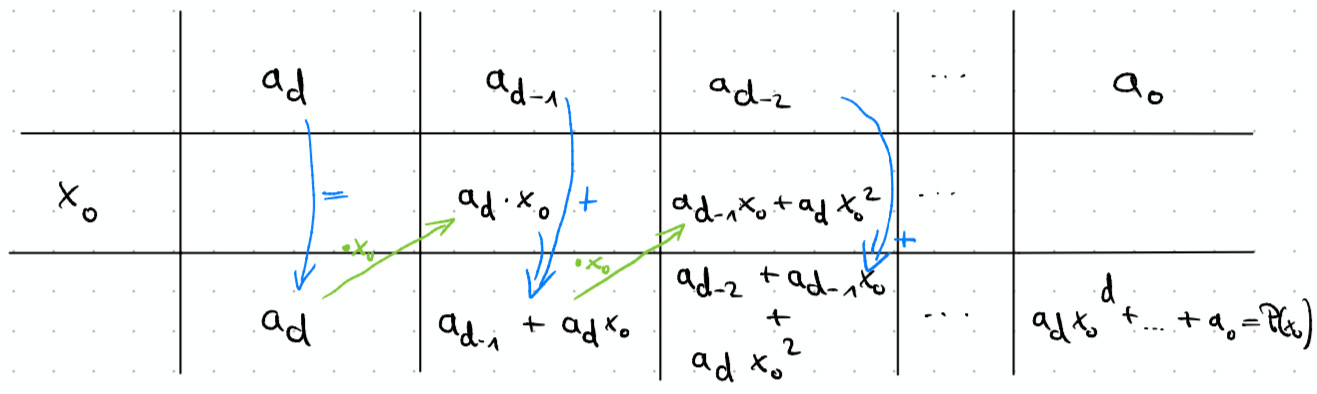 a_d a_{d-1} a_{d-2} ... a_0
x_0 = a_d · x_0 + a_{d-1}x_0 + a_d x_0^2 ... +
·x_0 ·x_0
a_d a_{d-1} + a_d x_0 a_{d-2} + a_{d-1}x_0 + a_d x_0^2 ... a_d x_0^d + ... + a_0 = P(x_0)